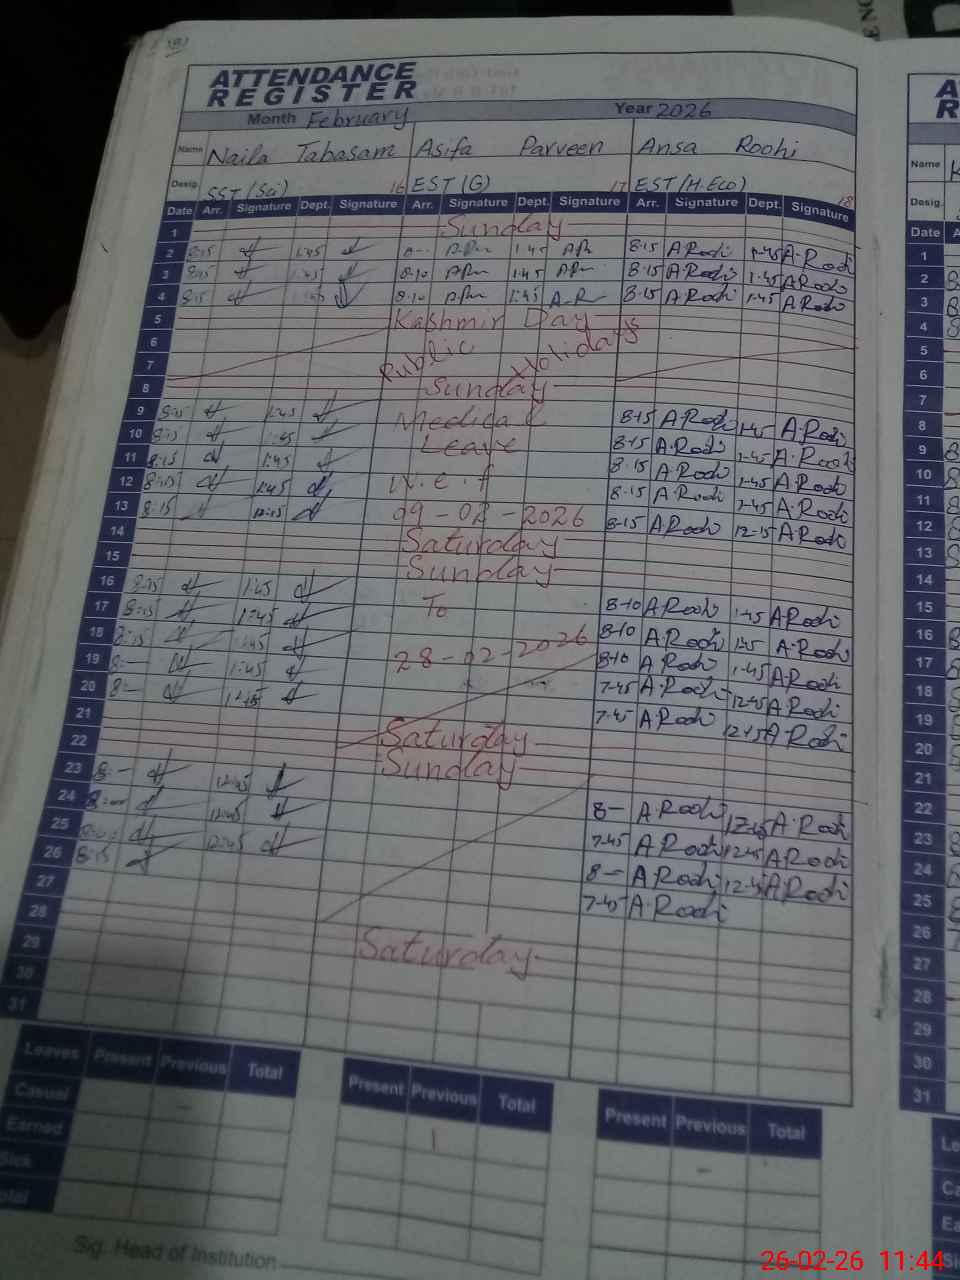 ATTENDANCE
REGISTER
Month February Year 2026
Name Naila Tabasam Asifa Parveen Ansa Roohi
Desig. SST (Sci) 16 EST (G) 17 EST (H.Eco) 18
Date Arr. Signature Dept. Signature Arr. Signature Dept. Signature Arr. Signature Dept. Signature
1 Sunday
2 8:15 1:45 1:45 8-15 A.Roohi 1-45 A.Roohi
3 8:15 1:45 8-10 1:45 8-15 A.Roohi 1-45 A.Roohi
4 8:15 1:45 8-10 1:45 8-15 A.Roohi 1-45 A.Roohi
5 Kashmir Day
6 Public Holidays
7
8 Sunday
9 8:15 1:45 Medical 8-15 A.Roohi 1-45 A.Roohi
10 8:15 1:45 Leave 8-15 A.Roohi 1-45 A.Roohi
11 8:15 1:45 8-15 A.Roohi 1-45 A.Roohi
12 8:15 1:45 W.e.f 8-15 A.Roohi 1-45 A.Roohi
13 8:15 12:15 09-02-2026 8-15 A.Roohi 12-15 A.Roohi
14 Saturday
15 Sunday
16 8:15 1:45 8-10 A.Roohi 1-45 A.Roohi
17 8:15 1:45 To 8-10 A.Roohi 1-45 A.Roohi
18 8:15 1:45 8-10 A.Roohi 1-45 A.Roohi
19 8:— 1:45 28-02-2026 7-45 A.Roohi 12-45 A.Roohi
20 8:— 7-45 A.Roohi 12-15 A.Roohi
21 Saturday
22 Sunday
23 8:— 12:45 8— A.Roohi 12-45 A.Roohi
24 8:— 12:45 7-45 A.Roohi 12-45 A.Roohi
25 8:00 12:45 8— A.Roohi 12-45 A.Roohi
26 8:15 7-45 A.Roohi
27
28 Saturday
29
30
31
Leaves Present Previous Total Present Previous Total Present Previous Total
Casual - 1 -
Earned
Sick
Total
Sig. Head of Institution
Name
Desig.
Date
1
2
3
4
5
6
7
8
9
10
11
12
13
14
15
16
17
18
19
20
21
22
23
24
25
26
27
28
29
30
31
26-02-26 11:44